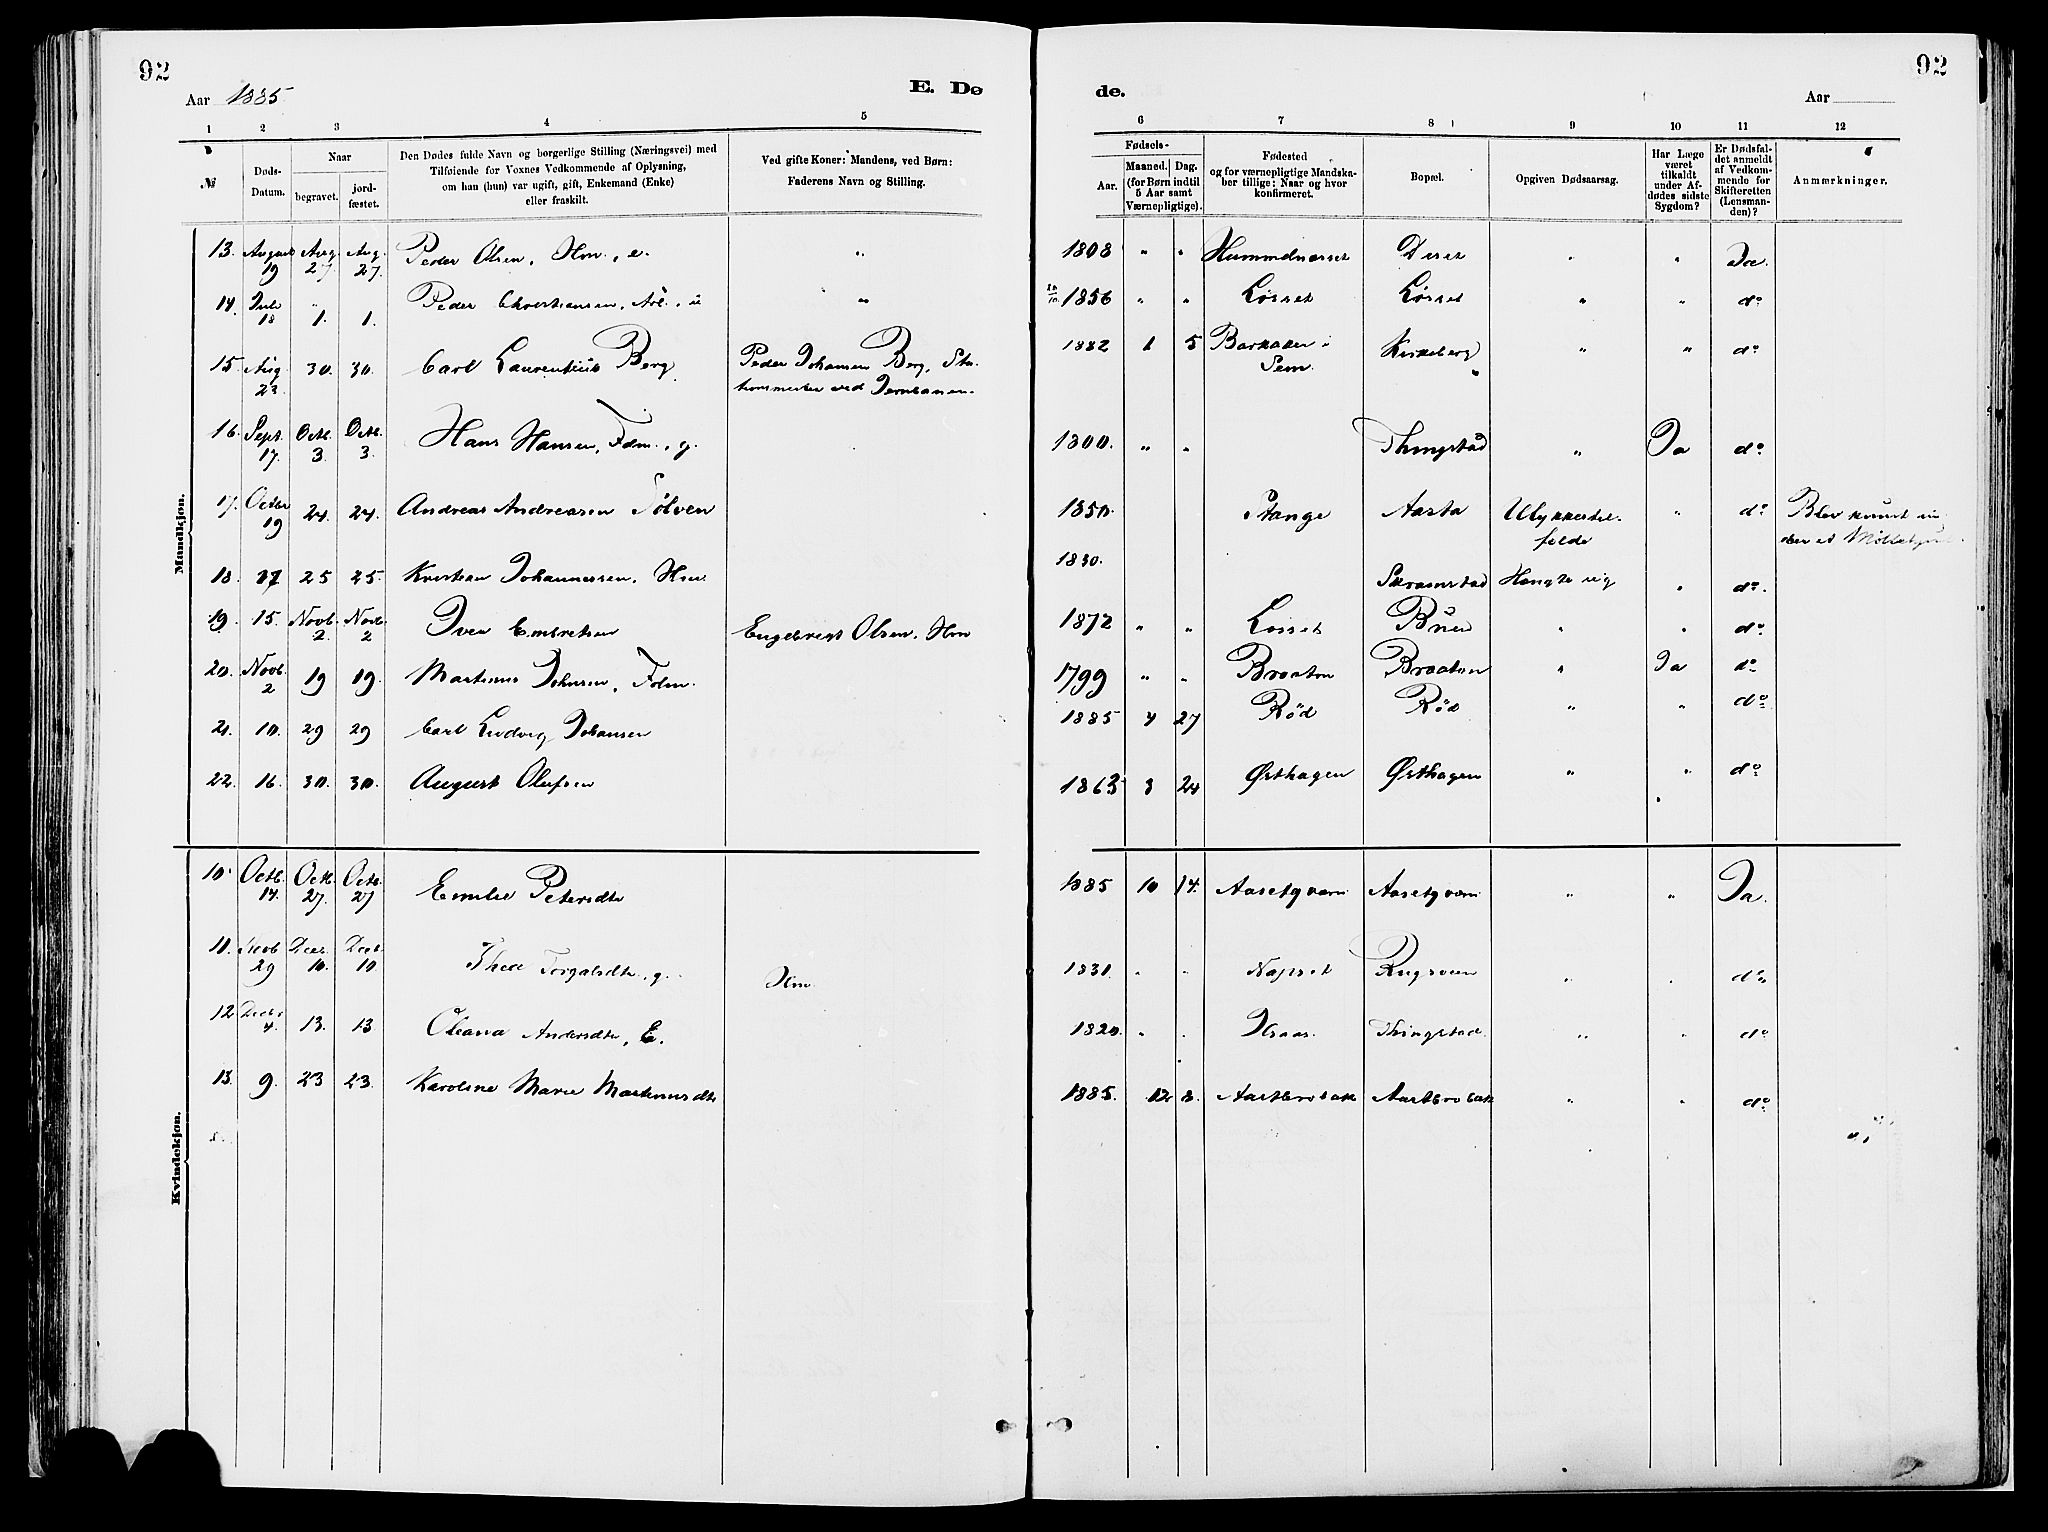 92
Aar 1885.
E. Dø
1 2 3 4 5
№
Døds-
Datum.
Naar
begravet.
jord-
fæstet.
Den Dødes fulde Navn og borgerlige Stilling (Næringsvei) med
Tilføiende for Voxnes Vedkommende af Oplysning,
om han (hun) var ugift, gift, Enkemand (Enke)
eller fraskilt.
Ved gifte Koner: Mandens, ved Børn:
Faderens Navn og Stilling.
Mandkjøn.
13. August 19 Aug. 27. Aug. 27. Peder Olsen, Hm., e. "
14. Juli 18 " 1. 1. Peder Christiansen, Arb., u "
15. Aug. 23 30. 30. Carl Laurentius Berg Peder Johansen Berg, Sta-
tionsmester ved Jernbanen.
16. Sept. 17. Octb. 3. Octb. 3. Hans Hansen, Fdm., g.
17. Octbr 19 24. 24. Andreas Andreasen Sølven
18. 17 25 25. Kristian Johannessen, Hm.
19. 15. Novb. 2. Novb. 2 Iver Embretsen Engebrest Olsen, Hm
20. Novb. 2 19 19. Martinus Johnsen, Fdm.
21. 10. 29 29 Carl Ludvig Johansen
22. 16. 30. 30. August Olufsen
Kvindekjøn.
10. Octb. 14. Octb. 27. Octb. 27 Emilie Petersdtr
11. Novb 29 Decr. 10. Decb. 10 Thea Torgalsdtr., g. Hm.
12 Decbr 4. 13. 13 Oleana Andersdtr, E.
13. 9. 23 23. Karoline Marie Martinusdtr
92
de.
Aar
6 7 8 9 10 11 12
Fødsels-
Aar.
Maaned.
Dag.
(for Børn indtil
5 Aar samt
Værnepligtige).
Fødested
og for værnepligtige Mandska-
ber tillige: Naar og hvor
konfirmeret.
Bopæl.
Opgiven Dødsaarsag.
Har Læge
været
tilkaldt
under Af-
dødes sidste
Sygdom?
Er Dødsfal-
det anmeldt
af Vedkom-
mende for
Skifteretten
(Lensman-
den)?
Anmærkninger.
1808 " " Hummelnæsset Deset " " Ja.
1856 " " Løsset Løsset " " do
1882 1 5 Barkaker i
Sem. Kirkeberg " " do
1800. " " Thingstad " Ja do
1850. Stange Aasta Ulykkestil-
fælde " do Blev knust un-
der et Møllehjul.
1830. Skramstad Hængte sig " do.
1872 " " Løsset Buer " " do
1799 " " Braaten Braaten " Ja do
1885 4 27 Rød Rød " " do
1863 3 24 Østhagen Østhagen " " do
1885 10 14. Aasetqværn Aasetqværn " " Ja.
1831. " " Næpset Rugsveen " " do
1820. " . Thingstad. " " do
1885. 12 8. Aastbrobak Aastbrobak " " do